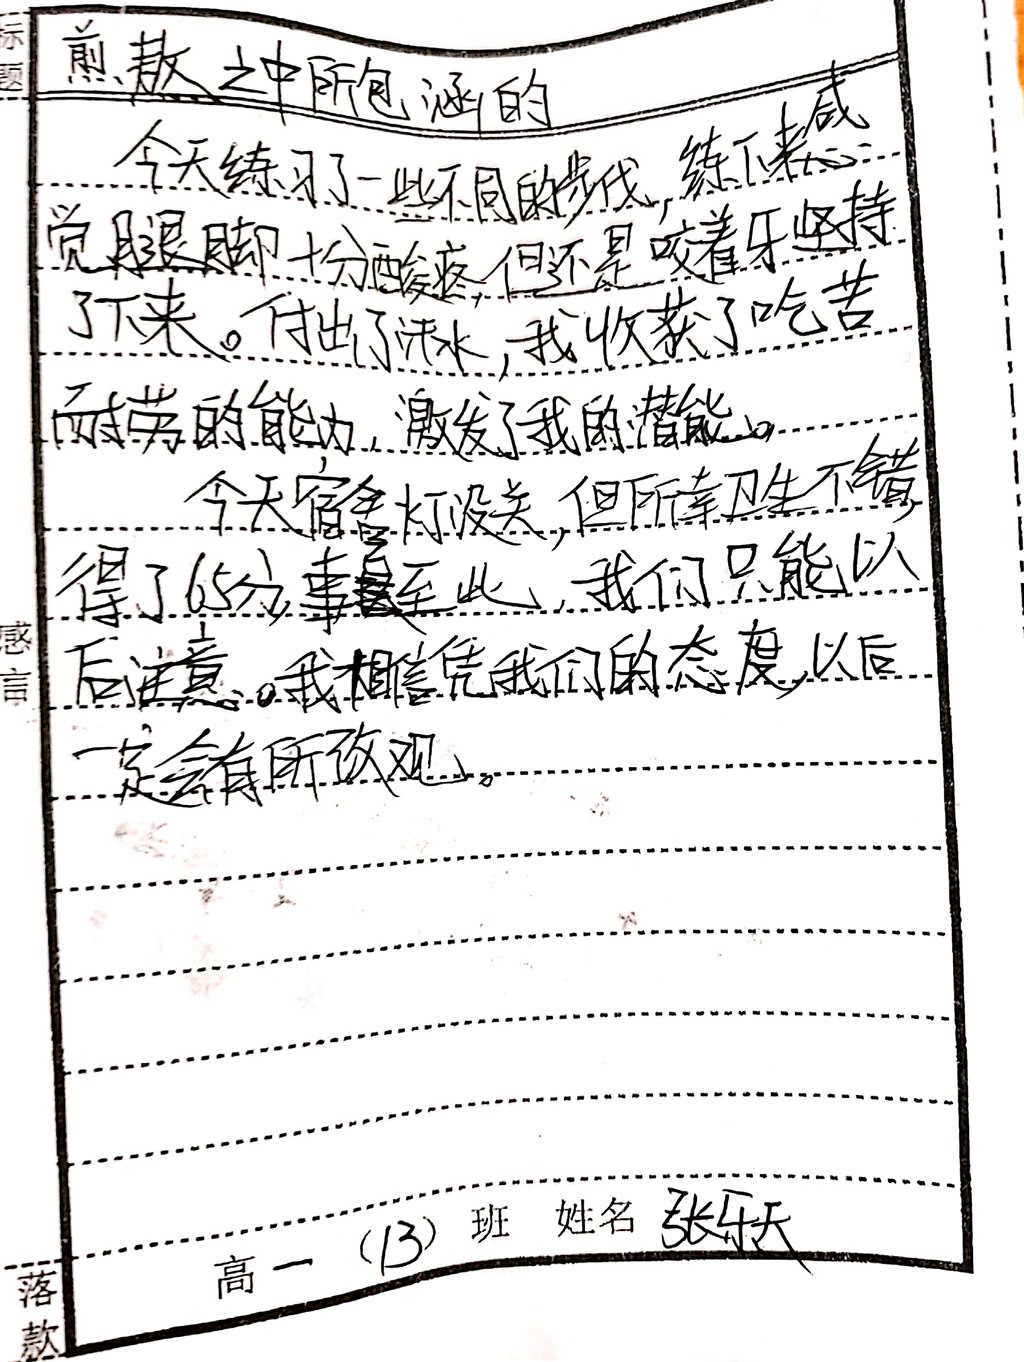 标题
煎熬之中所包涵的
今天练习了一些不同的步伐,练下来感
觉腿脚十分酸疼,但还是咬着牙坚持
了下来。付出了汗水,我收获了吃苦
耐劳的能力,激发了我的潜能。
今天宿舍灯没关,但所幸卫生不错,
得了65分,事已至此,我们只能以
后注意。我相信凭我们的态度,以后
一定会有所改观。
感言
高一(13)班 姓名 张乐天
落款